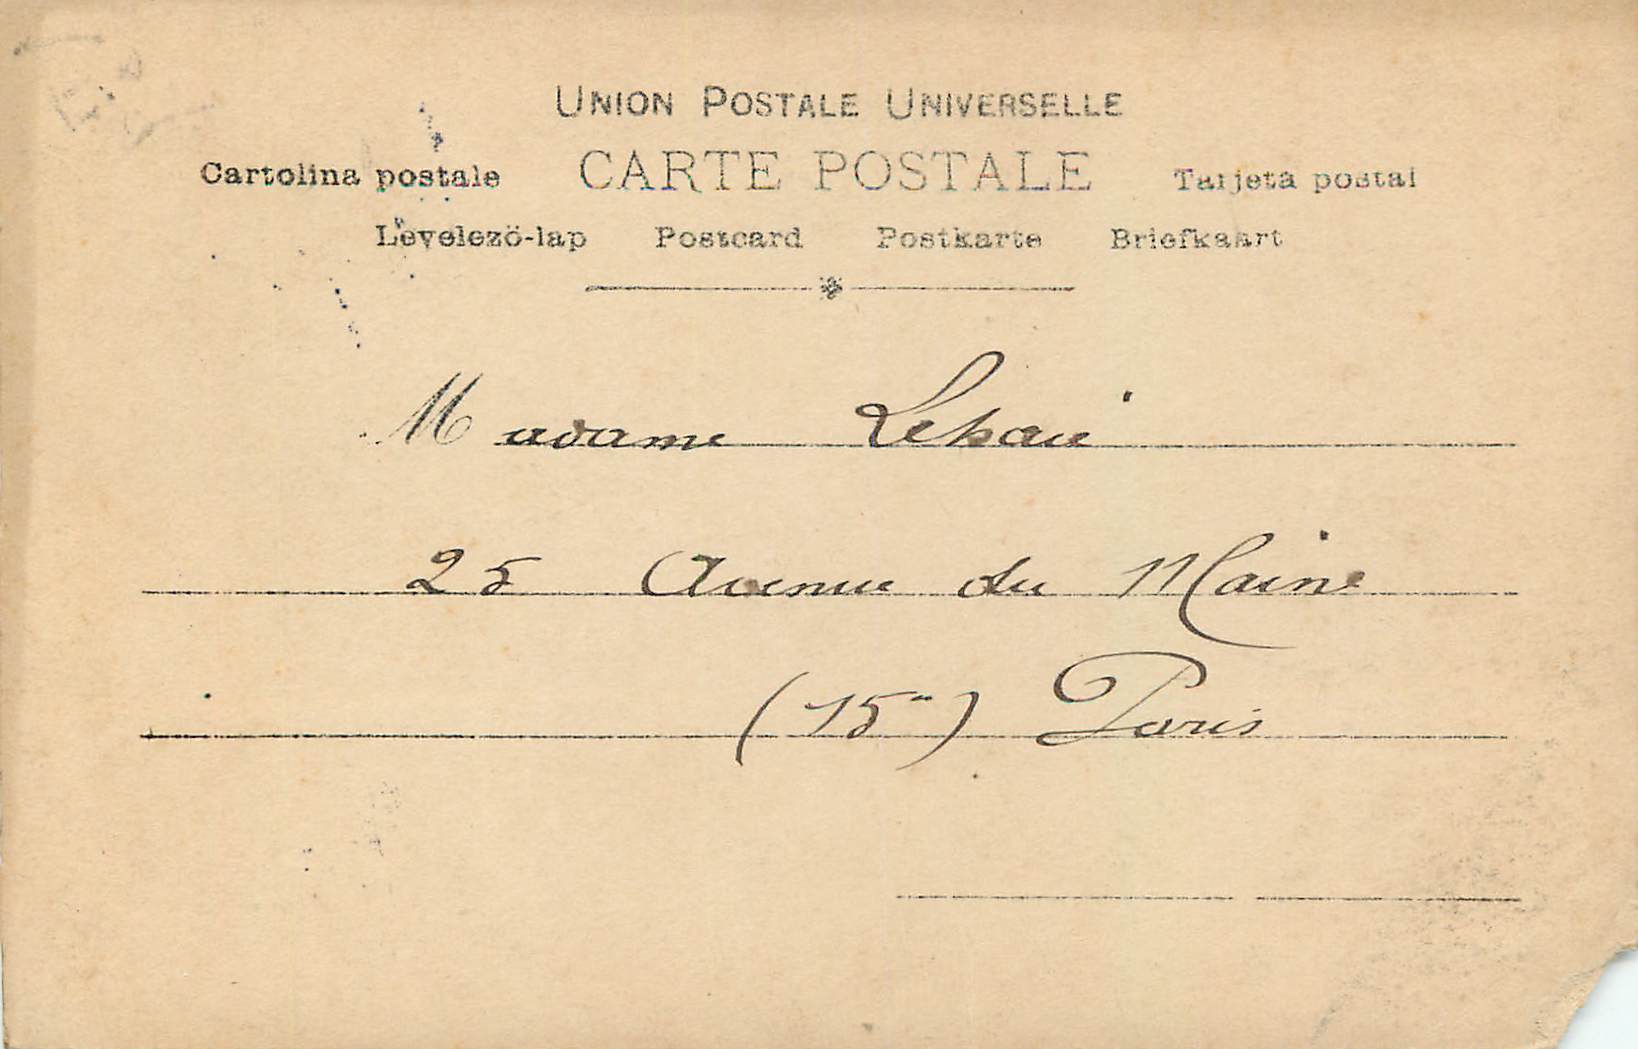 UNION POSTALE UNIVERSELLE
Cartolina postale CARTE POSTALE Tarjeta postal
Levelezö-lap Postcard Postkarte Briefkaart
Madame
25 Avenue du Maine
(15e) Paris